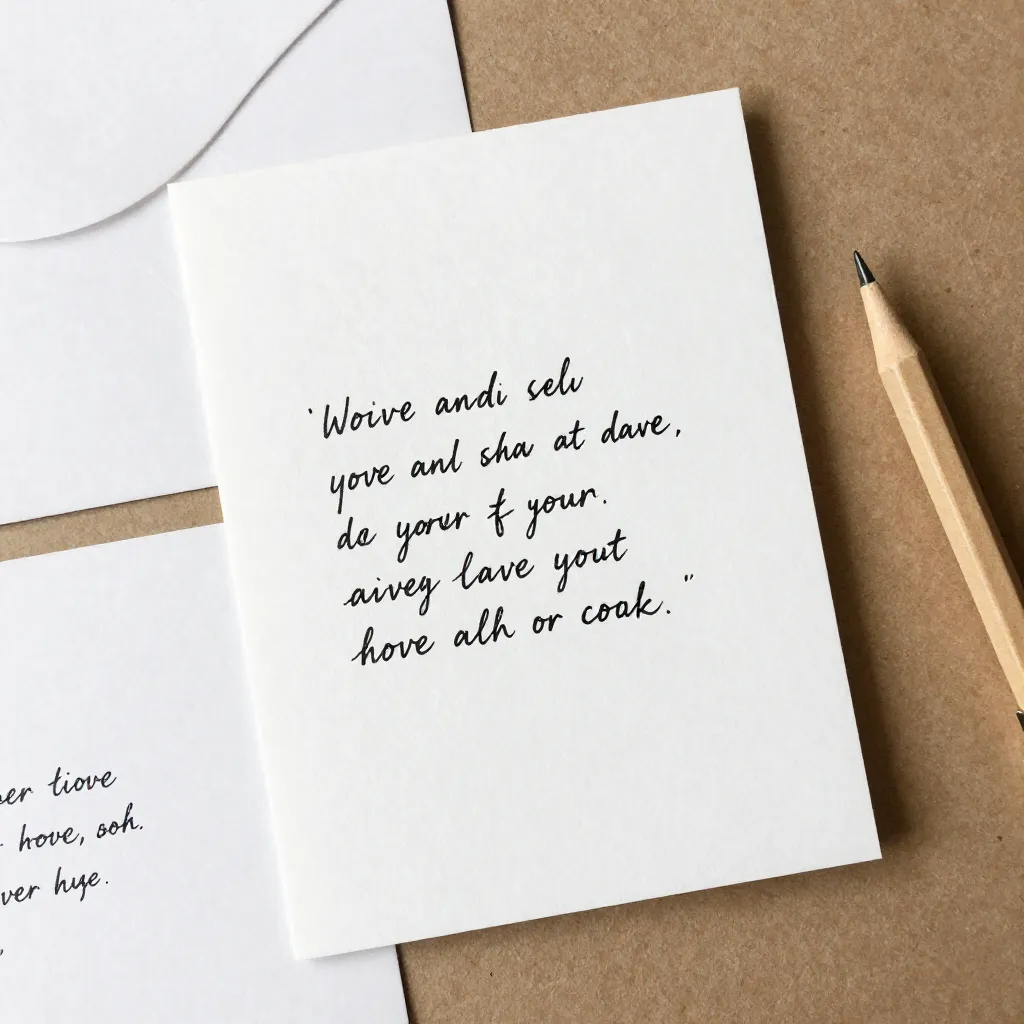 'Woive andi selv
yove anl sha at dave,
da yorur f your.
aiveg lave yout
hove alh or coak."
er tiove
hove, ooh.
ver hye.